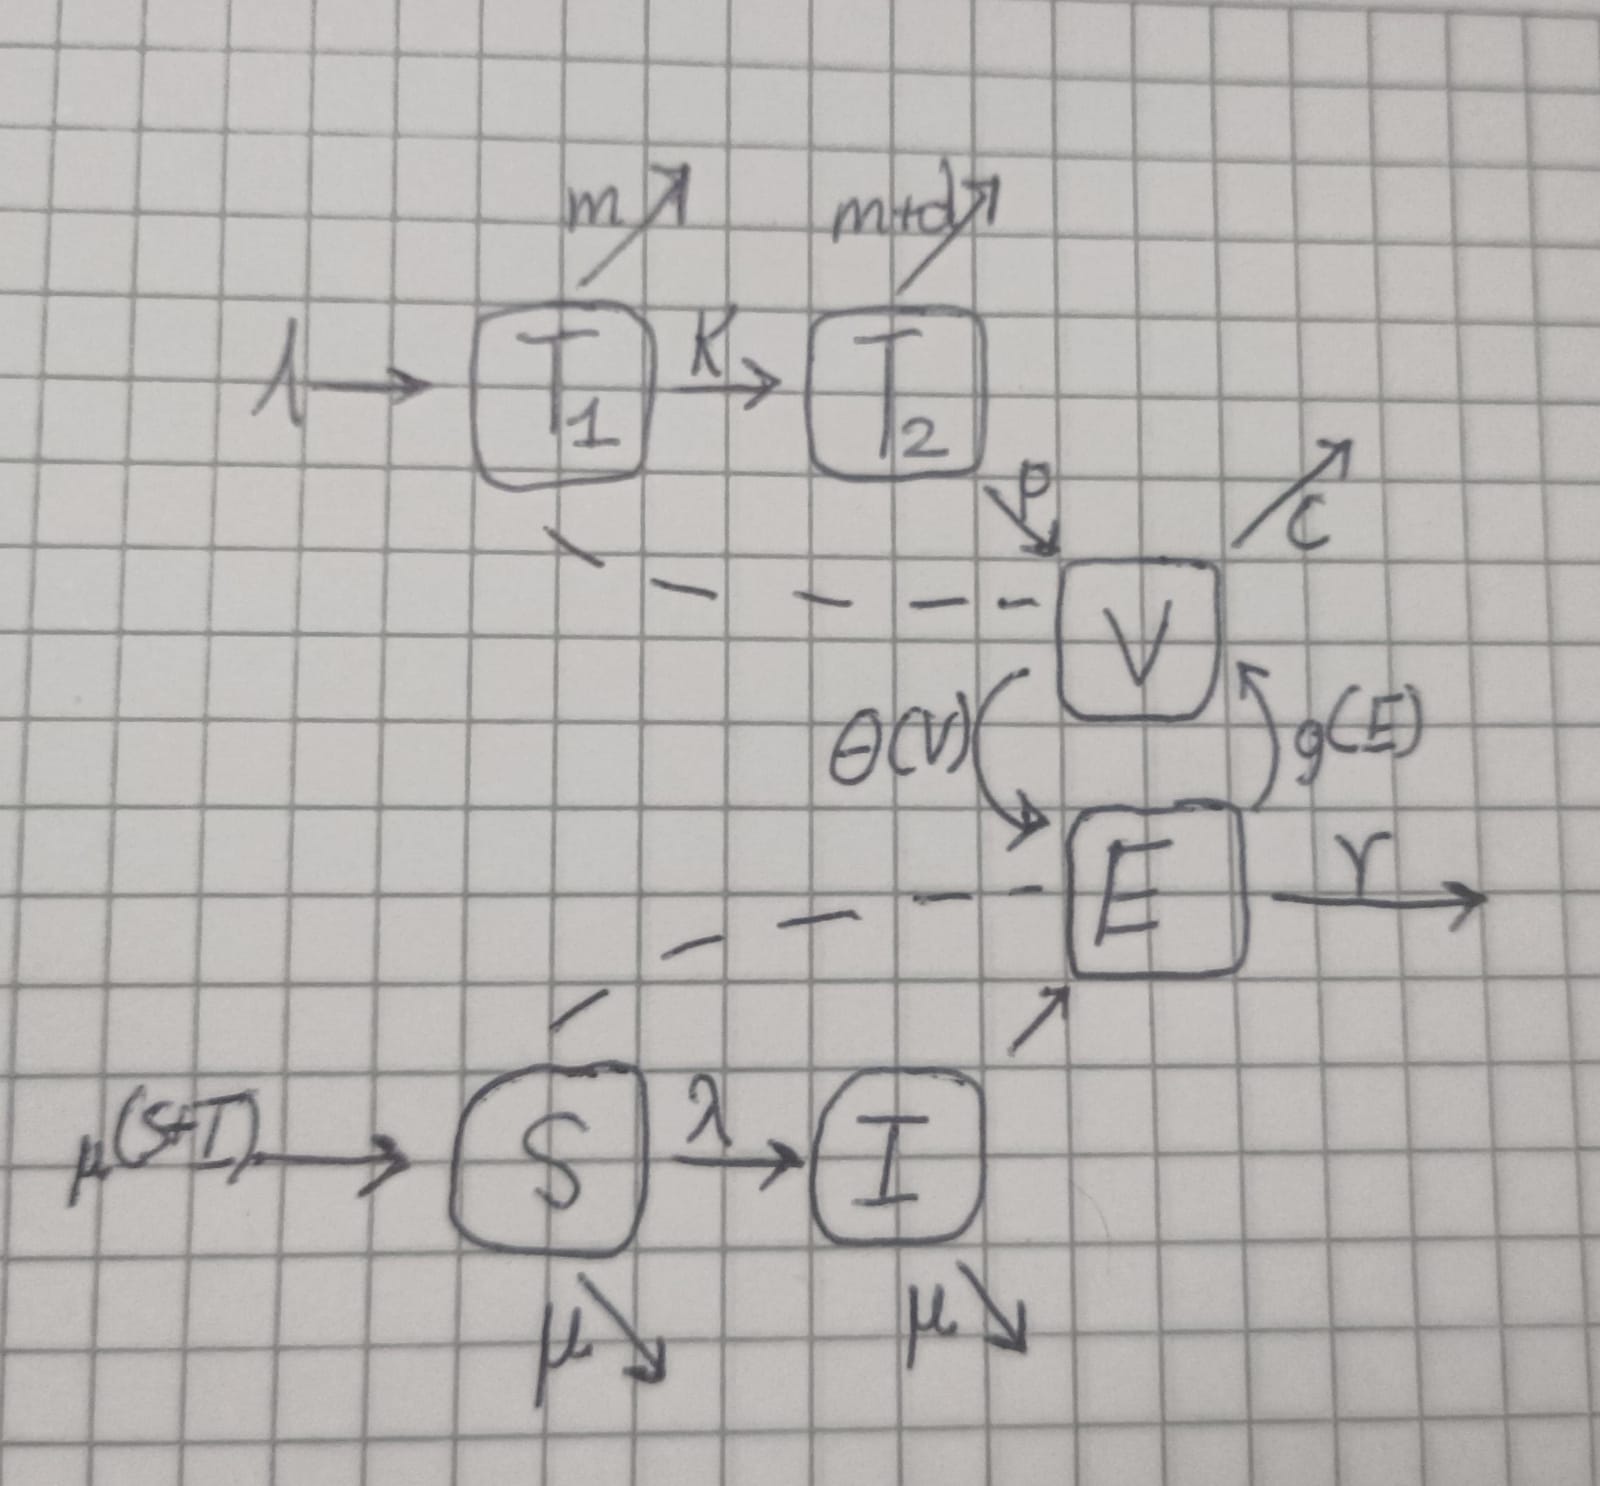 m m+d
Λ T1 K T2
p
c
V
θ(V) g(E)
E γ
μ(S+I) S λ I
μ μ